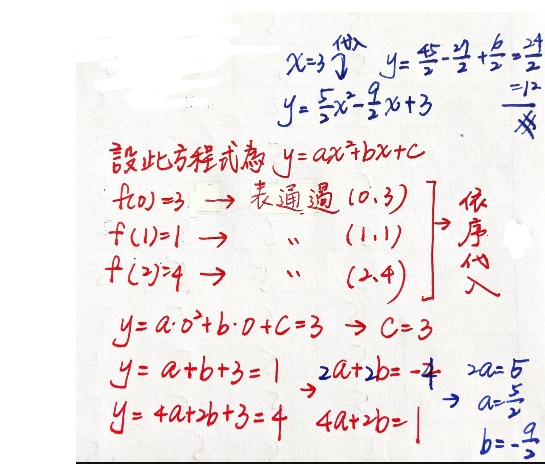 x=3 代入 y=45/2-27/2+6/2=24/2
=12
y=5/2x²-9/2x+3
設此方程式為 y=ax²+bx+c
f(0)=3 → 表通過 (0.3)
f(1)=1 → 〃 (1.1)
f(2)=4 → 〃 (2.4)
→ 依序代入
y=a·0²+b·0+C=3 → C=3
y=a+b+3=1 → 2a+2b=-4 → 2a=5
y=4a+2b+3=4 4a+2b=1 a=5/2
b=-9/2